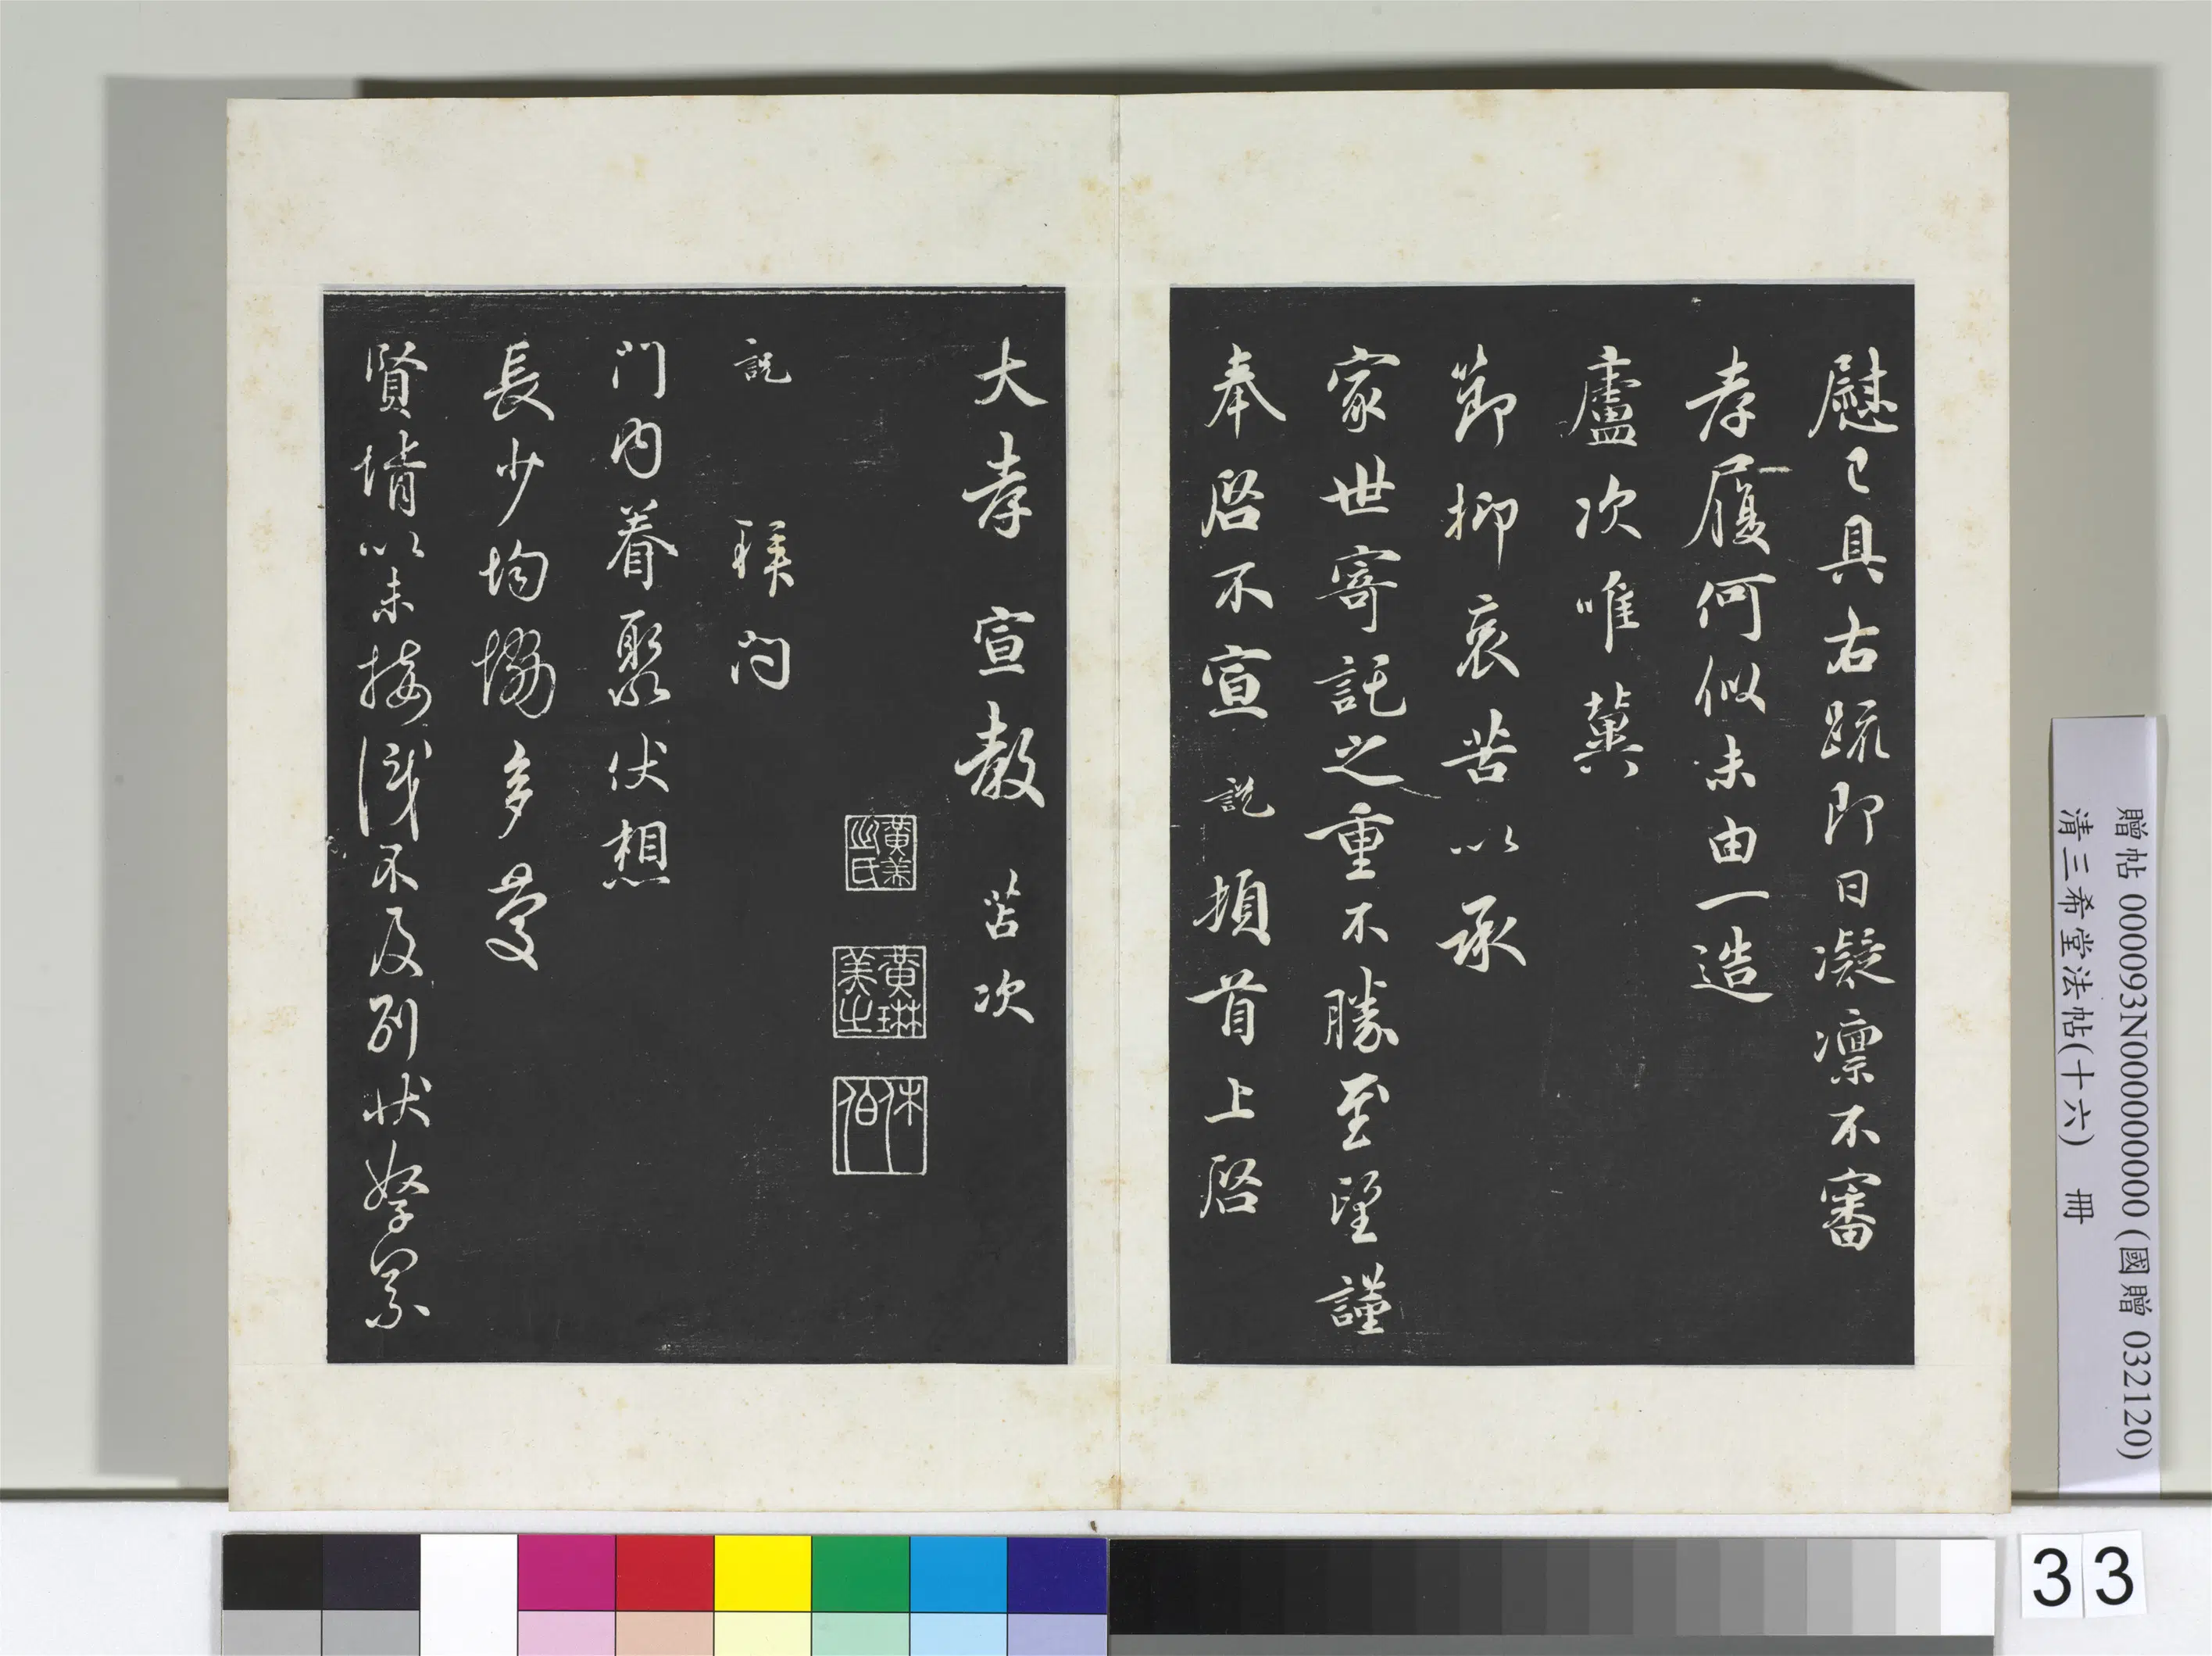 慰已具右疏即日凝凜不審
孝履何似未由一造
廬次唯冀
節抑哀苦以承
家世寄託之重不勝至望謹
奉啓不宣 說 頓首上啓
大孝宣教 苫次
黃美之氏
黃琳美之
休伯
說 拜問
門內眷聚伏想
長少均協多慶
賢壻以未接識不及列狀孥累
贈帖 000093N000000000 (國贈 032120)
清三希堂法帖(十六) 冊
33